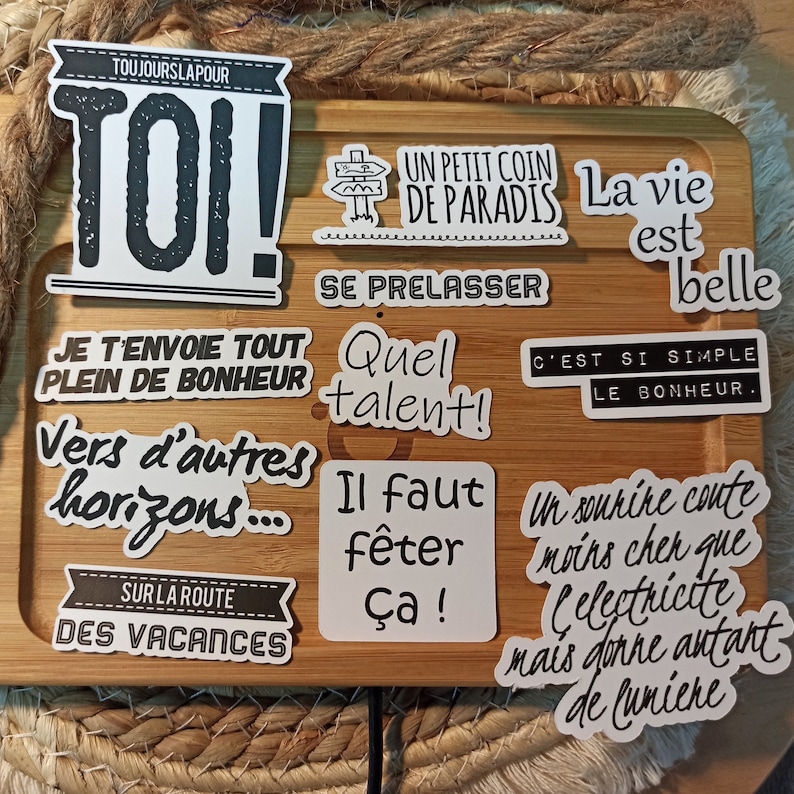 TOUJOURSLAPOUR
TOI!
UN PETIT COIN
DE PARADIS
La vie
est
belle
SE PRELASSER
JE T'ENVOIE TOUT
PLEIN DE BONHEUR
Quel
talent!
C'EST SI SIMPLE
LE BONHEUR.
Vers d'autres
horizons...
Il faut
fêter
ça !
Un sourire coute
moins cher que
l'electricite
mais donne autant
de lumiere
SUR LA ROUTE
DES VACANCES